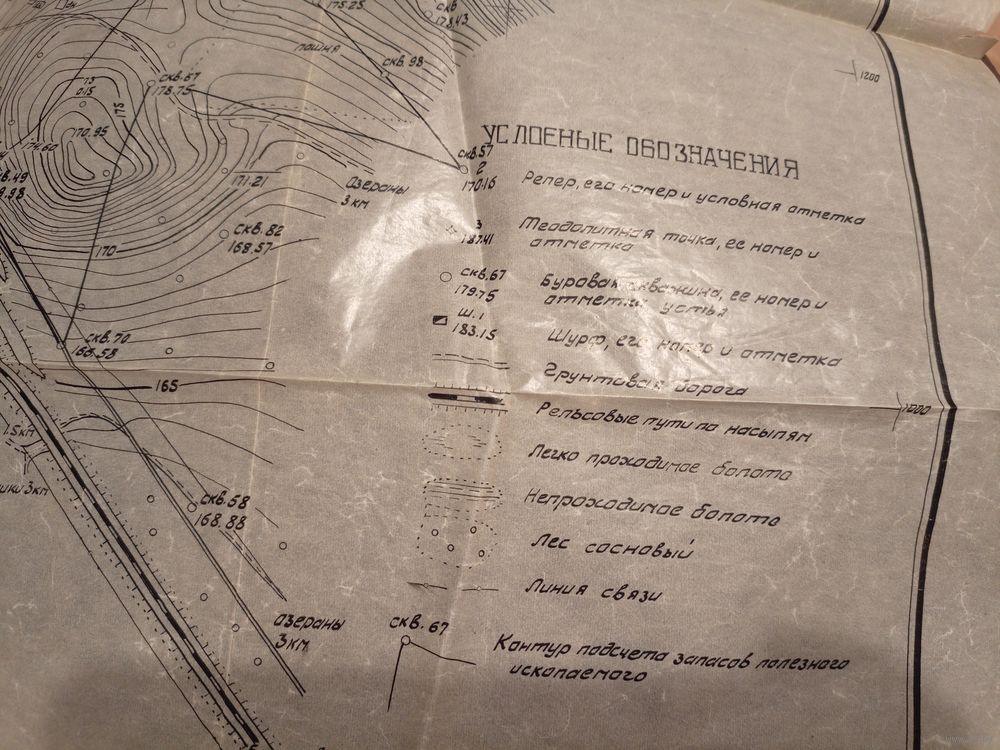 175.25
СКВ
178.43
1200
пашня
скв. 98
скв. 67
178.75
175
13
0.15
170.95
174.60
УСЛОВНЫЕ ОБОЗНАЧЕНИЯ
скв. 57
2
170.16
Репер, его номер и условная отметка
171.21
Озераны
3 км
скв. 82
168.57
3
187.41
Теодолитная точка, ее номер и
отметка
170
скв. 67
179.75
Буровая скважина, ее номер и
отметка устья
Ш. 1
183.15
Шурф, его номер и отметка
скв. 70
166.58
Грунтовая дорога
165
1000
Рельсовые пути по насыпям
1.5 км
3 км
Легко проходимое болото
Непроходимое болото
скв. 58
168.88
Лес сосновый
Линия связи
Озераны
3 км
скв. 67
Контур подсчета запасов полезного
ископаемого